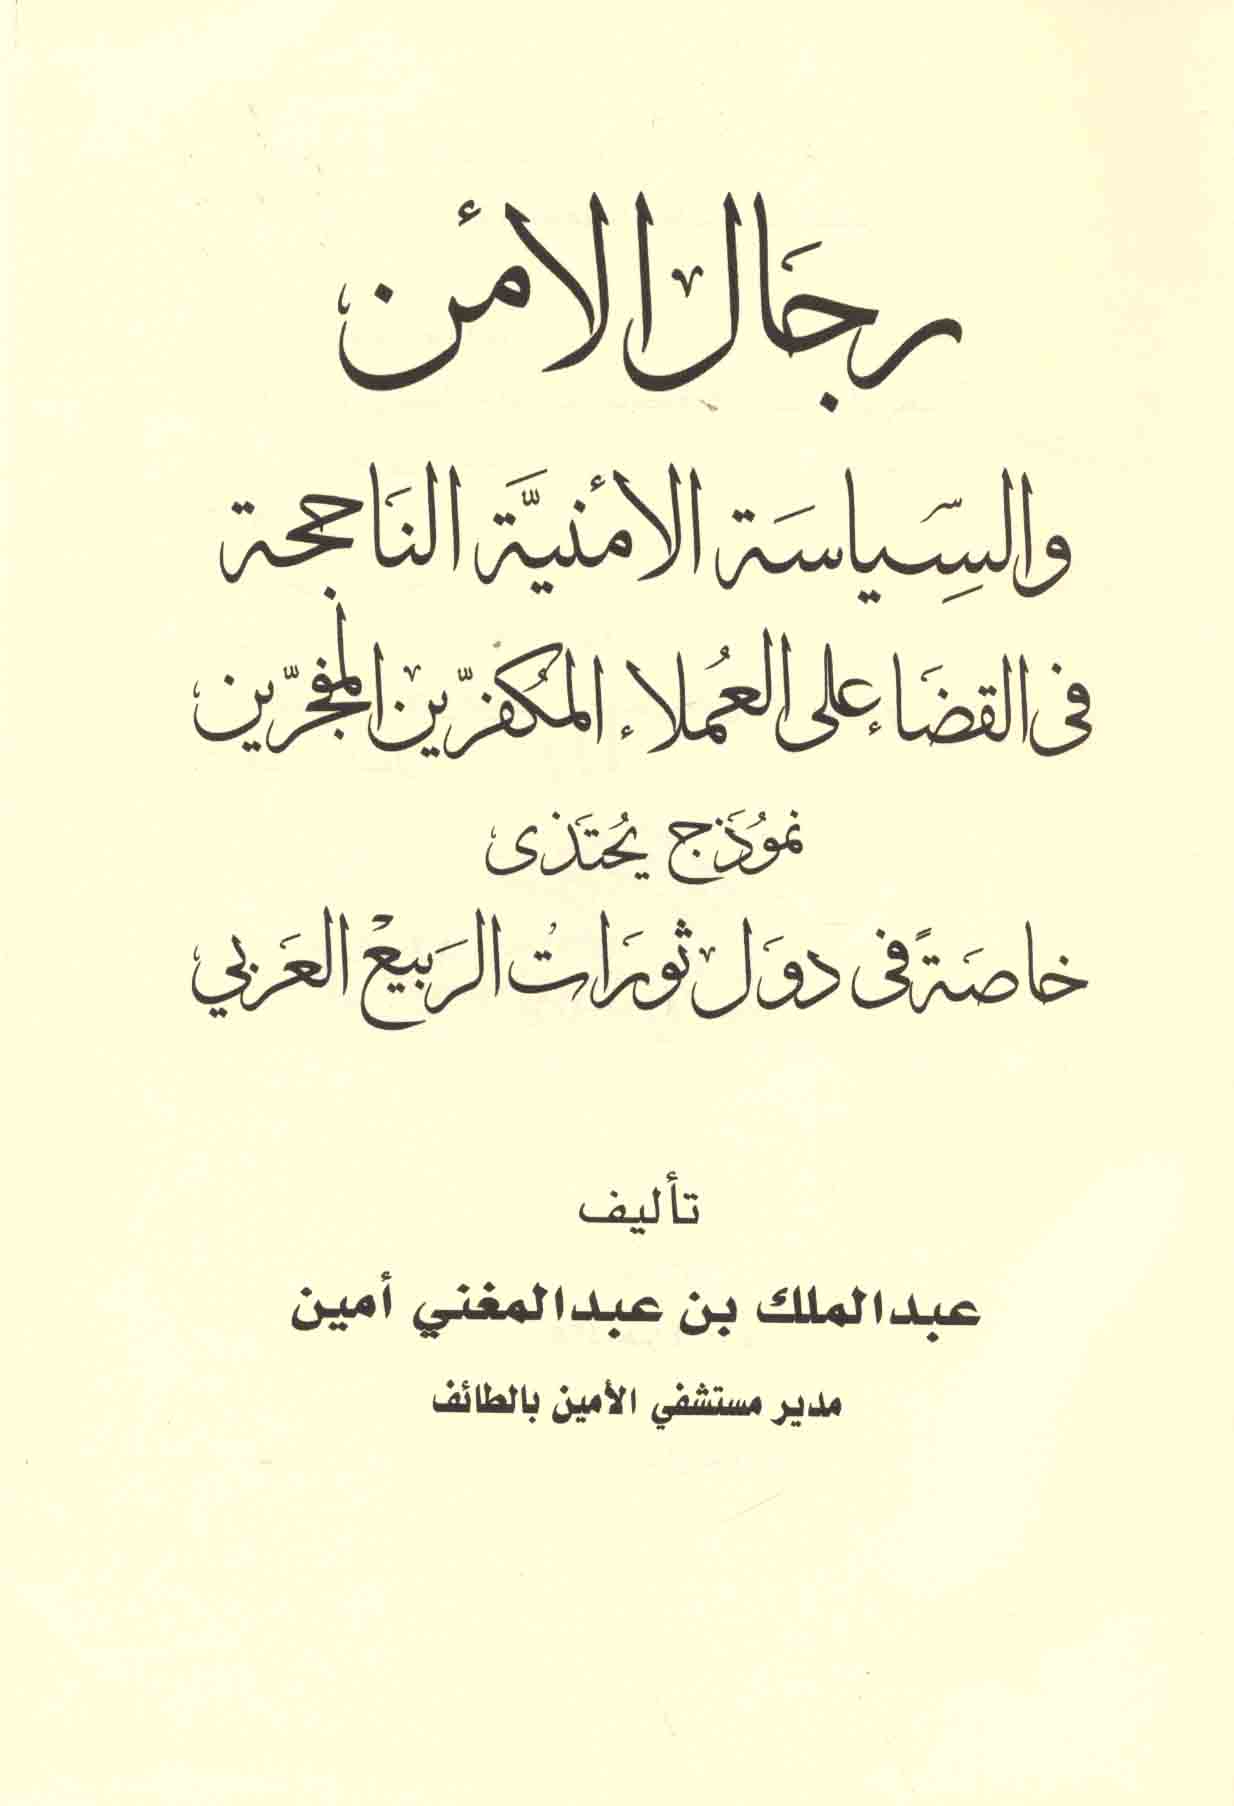 رجَال الأمن
والسِّياسَة الأمنيَّة النَاجحة
في القضَاء على العُملاء المكُفرّين المفجرّين
نموُذَج يُحتَذى
خاصَةً في دوَل ثورَاتُ الرَبيعْ العَربي
تأليف
عبدالملك بن عبدالمغني أمين
مدير مستشفي الأمين بالطائف